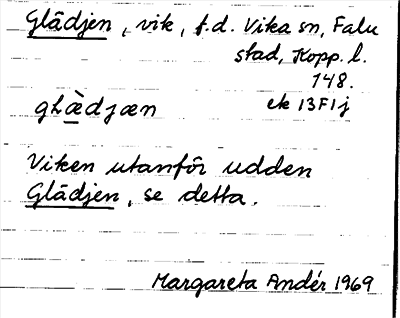 Glädjen, vik, f.d. Vika sn, Falu
stad, Kopp. l.
148.
glæ̀djæn ek 13F1j
Viken utanför udden
Glädjen, se detta.
Margareta Andér 1969